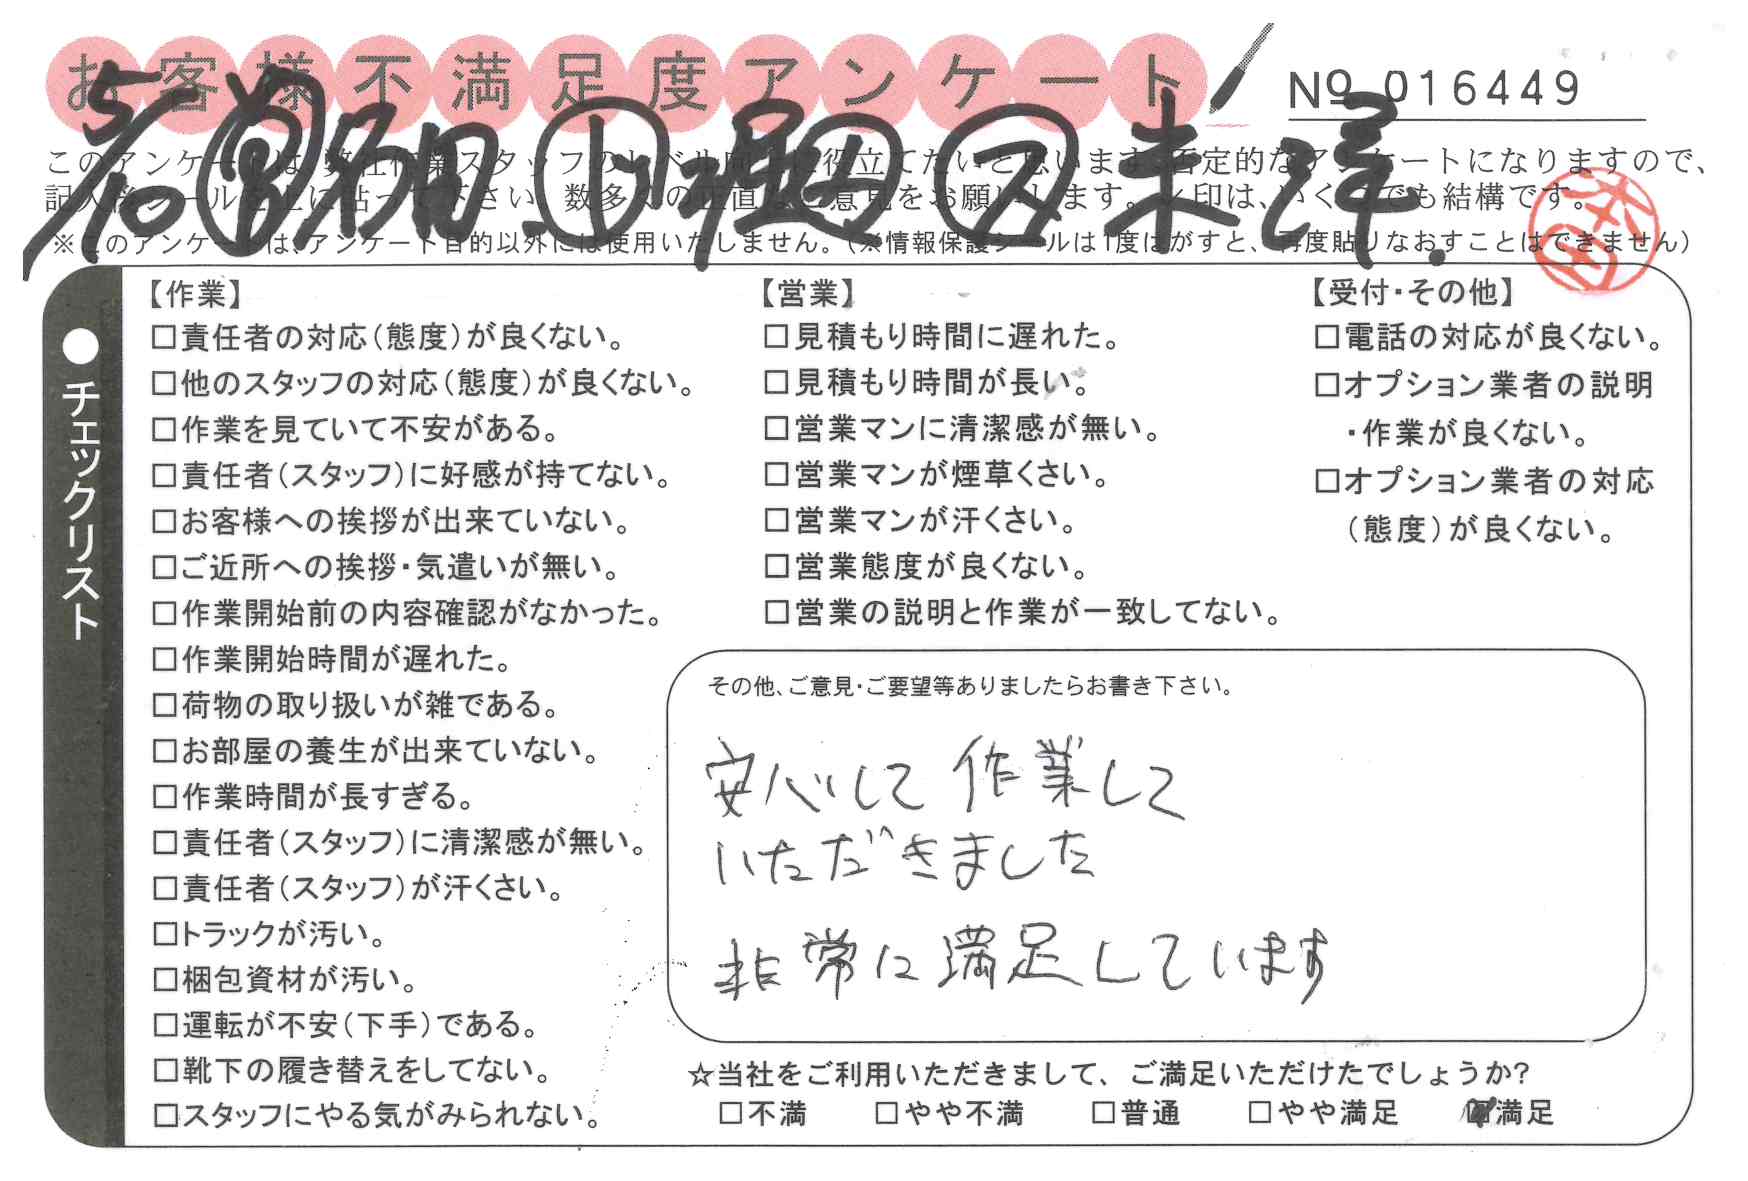 お客様不満足度アンケート
Nº 016449
このアンケートは、弊社作業スタッフのレベル向上に役立てたいと思います。否定的なアンケートになりますので、
記入後シールを上に貼って下さい。数多くの正直なご意見をお願いします。✓印は、いくつでも結構です。
※このアンケートは、アンケート目的以外には使用いたしません。(※情報保護シールは1度はがすと、再度貼りなおすことはできません)
●チェックリスト
【作業】
□責任者の対応(態度)が良くない。
□他のスタッフの対応(態度)が良くない。
□作業を見ていて不安がある。
□責任者(スタッフ)に好感が持てない。
□お客様への挨拶が出来ていない。
□ご近所への挨拶・気遣いが無い。
□作業開始前の内容確認がなかった。
□作業開始時間が遅れた。
□荷物の取り扱いが雑である。
□お部屋の養生が出来ていない。
□作業時間が長すぎる。
□責任者(スタッフ)に清潔感が無い。
□責任者(スタッフ)が汗くさい。
□トラックが汚い。
□梱包資材が汚い。
□運転が不安(下手)である。
□靴下の履き替えをしてない。
□スタッフにやる気がみられない。
【営業】
□見積もり時間に遅れた。
□見積もり時間が長い。
□営業マンに清潔感が無い。
□営業マンが煙草くさい。
□営業マンが汗くさい。
□営業態度が良くない。
□営業の説明と作業が一致してない。
【受付・その他】
□電話の対応が良くない。
□オプション業者の説明
・作業が良くない。
□オプション業者の対応
(態度)が良くない。
その他、ご意見・ご要望等ありましたらお書き下さい。
安心して作業して
いただきました
非常に満足しています
☆当社をご利用いただきまして、ご満足いただけたでしょうか?
□不満 □やや不満 □普通 □やや満足 ☑満足